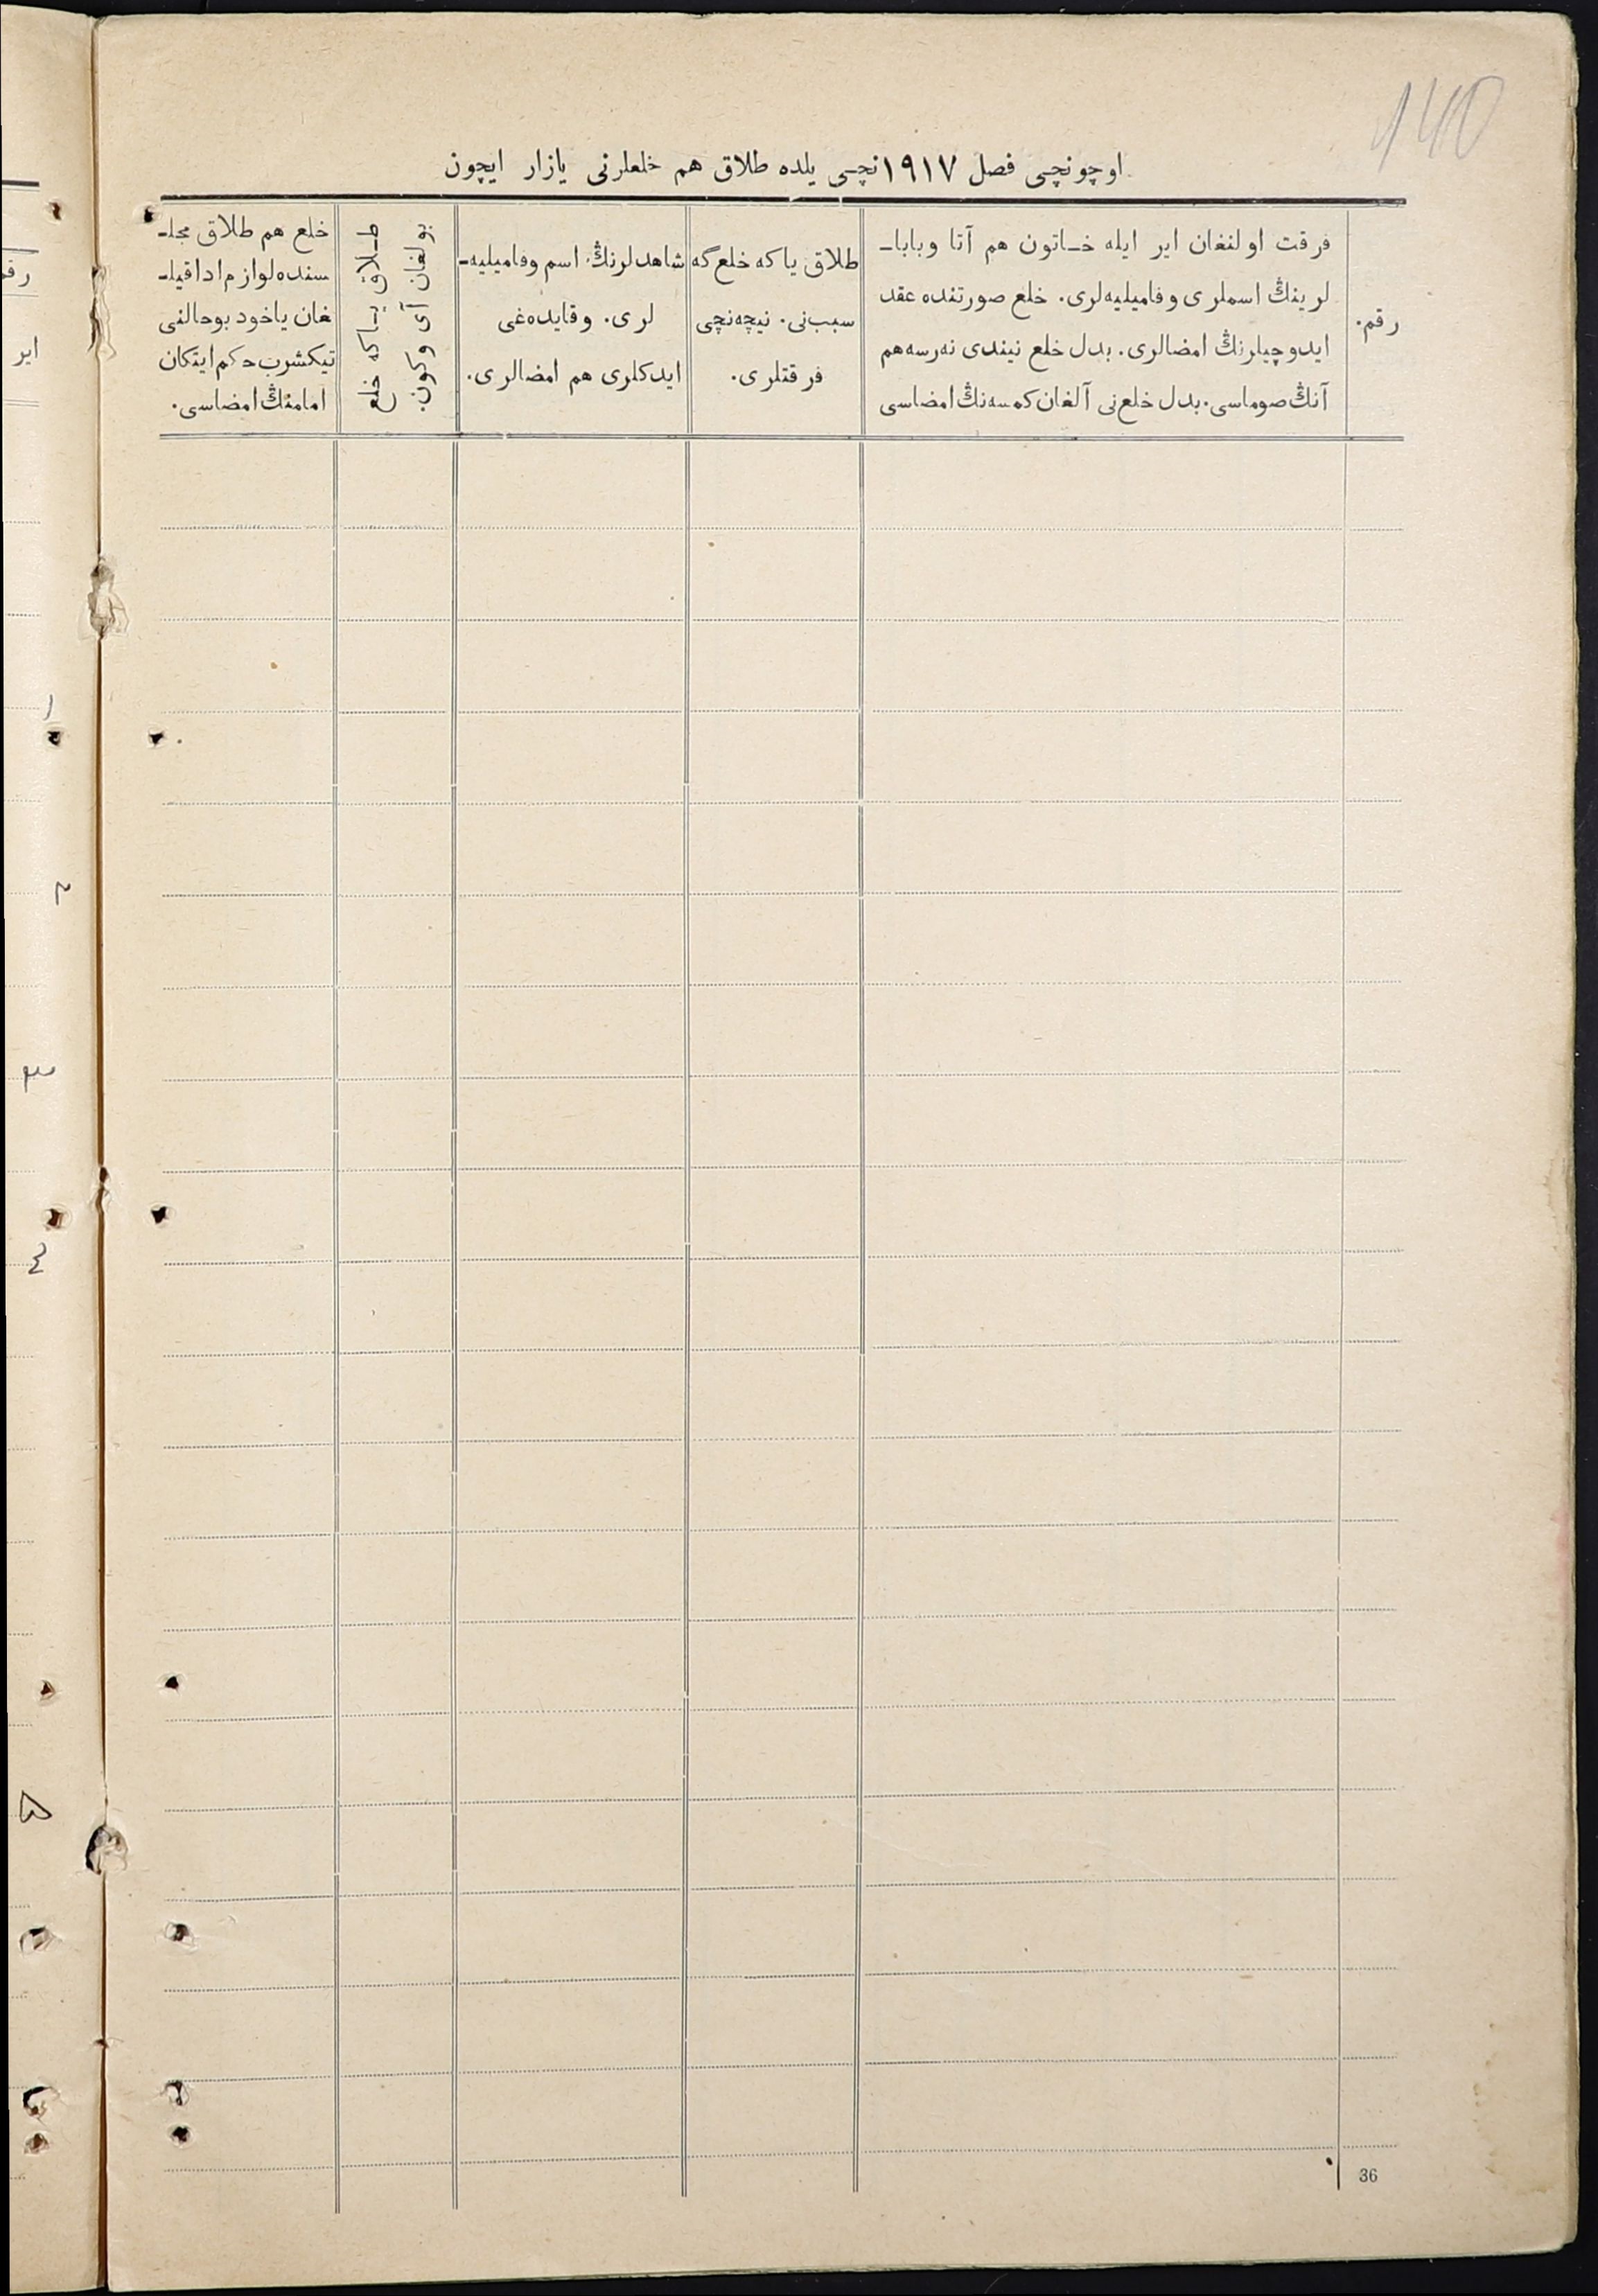 140
اوچونچی فصل ١٩١٧نچی یلده طلاق هم خلعلرنی یازار ایچون
رقم.
فرقت اولنغان ایر ایله خـاتون هم آتا وباباـ
لرینڭ اسملری وفامیلیه‌لری. خلع صورتنده عقد
ایدوچیلرنڭ امضالری. بدل خلع نیندی نه‌رسه‌هم
آنڭ صوماسی. بدل خلع‌نی آلغان کمسه‌نڭ امضاسی
طلاق یا‌که خلع‌گه
سبب‌نی. نیچه‌نچی
فرقتلری.
شاهدلرنڭ اسم وفامیلیه‌ـ
لری. وقایده‌غی
ایدکلری هم امضالری.
طـلاق یـاکه خلع
بولغان آی وکون.
خلع هم طلاق مجلـ
سنده‌لوازم‌اداقیلـ
غان یاخود بوحالنی
تیکشرب‌حکم‌ایتکان
امامنڭ امضاسی.
ایر
١
٢
٣
٤
٥
36